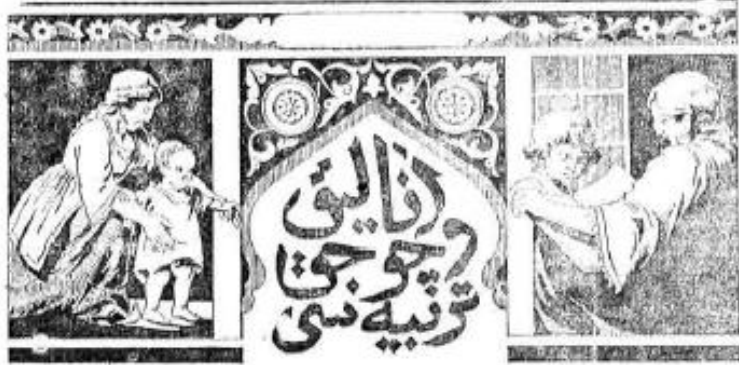 انالیق
وچوجق
تربیه سی